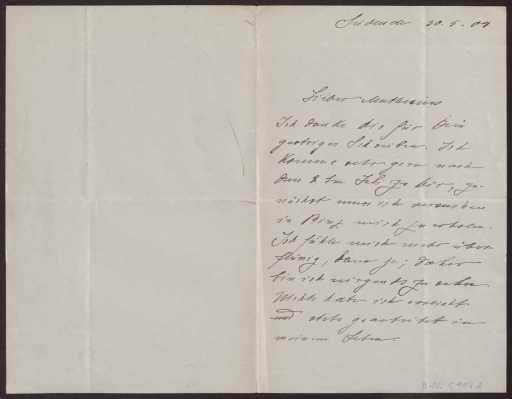 Südende 20.5.09
Lieber Mathieus
Ich danke dir für Dein
gestriges Schreiben. Ich
komme sehr gern nach
dem 2 ten Juli zu dir, zu-
nächst muss ich versuchen
in Binz mich zu erholen.
Ich fühle mich mehr über-
flüssig, denn je; daher
bin ich nirgends zu sehen
Nichts habe ich erreicht
und stets gearbeitet in
meinem Leben.